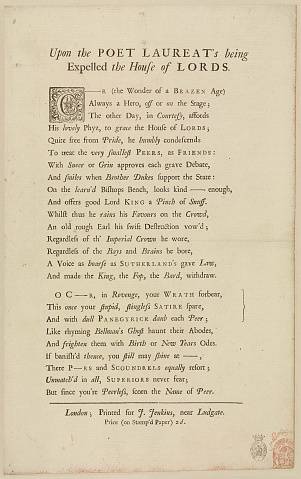 Upon the POET LAUREAT's being
Expelled the House of LORDS.
C——R (the Wonder of a BRAZEN Age)
Always a Hero, off or on the Stage;
The other Day, in Courtesy, affords
His lovely Phyz, to grace the House of LORDS;
Quite free from Pride, he humbly condescends
To treat the very smallest PEERS, as FRIENDS:
With Sneer or Grin approves each grave Debate,
And smiles when Brother Dukes support the State:
On the learn'd Bishops Bench, looks kind —— enough,
And offers good Lord KING a Pinch of Snuff.
Whilst thus he rains his Favours on the Crowd,
An old rough Earl his swift Destruction vow'd;
Regardless of th' Imperial Crown he wore,
Regardless of the Bays and Brains he bore,
A Voice as hoarse as SUTHERLAND's gave Law,
And made the King, the Fop, the Bard, withdraw.
O C——R, in Revenge, your WRATH forbear,
This once your stupid, stingless SATIRE spare,
And with dull PANEGYRICK daub each Peer;
Like rhyming Bellman's Ghost haunt their Abodes,
And frighten them with Birth or New Years Odes.
If banish'd thence, you still may shine at ——,
There P——RS and SCOUNDRELS equally resort;
Unmatch'd in all, SUPERIORS never fear;
But since you're Peerless, scorn the Name of Peer.
London; Printed for J. Jenkins, near Ludgate.
Price (on Stamp'd Paper) 2d.